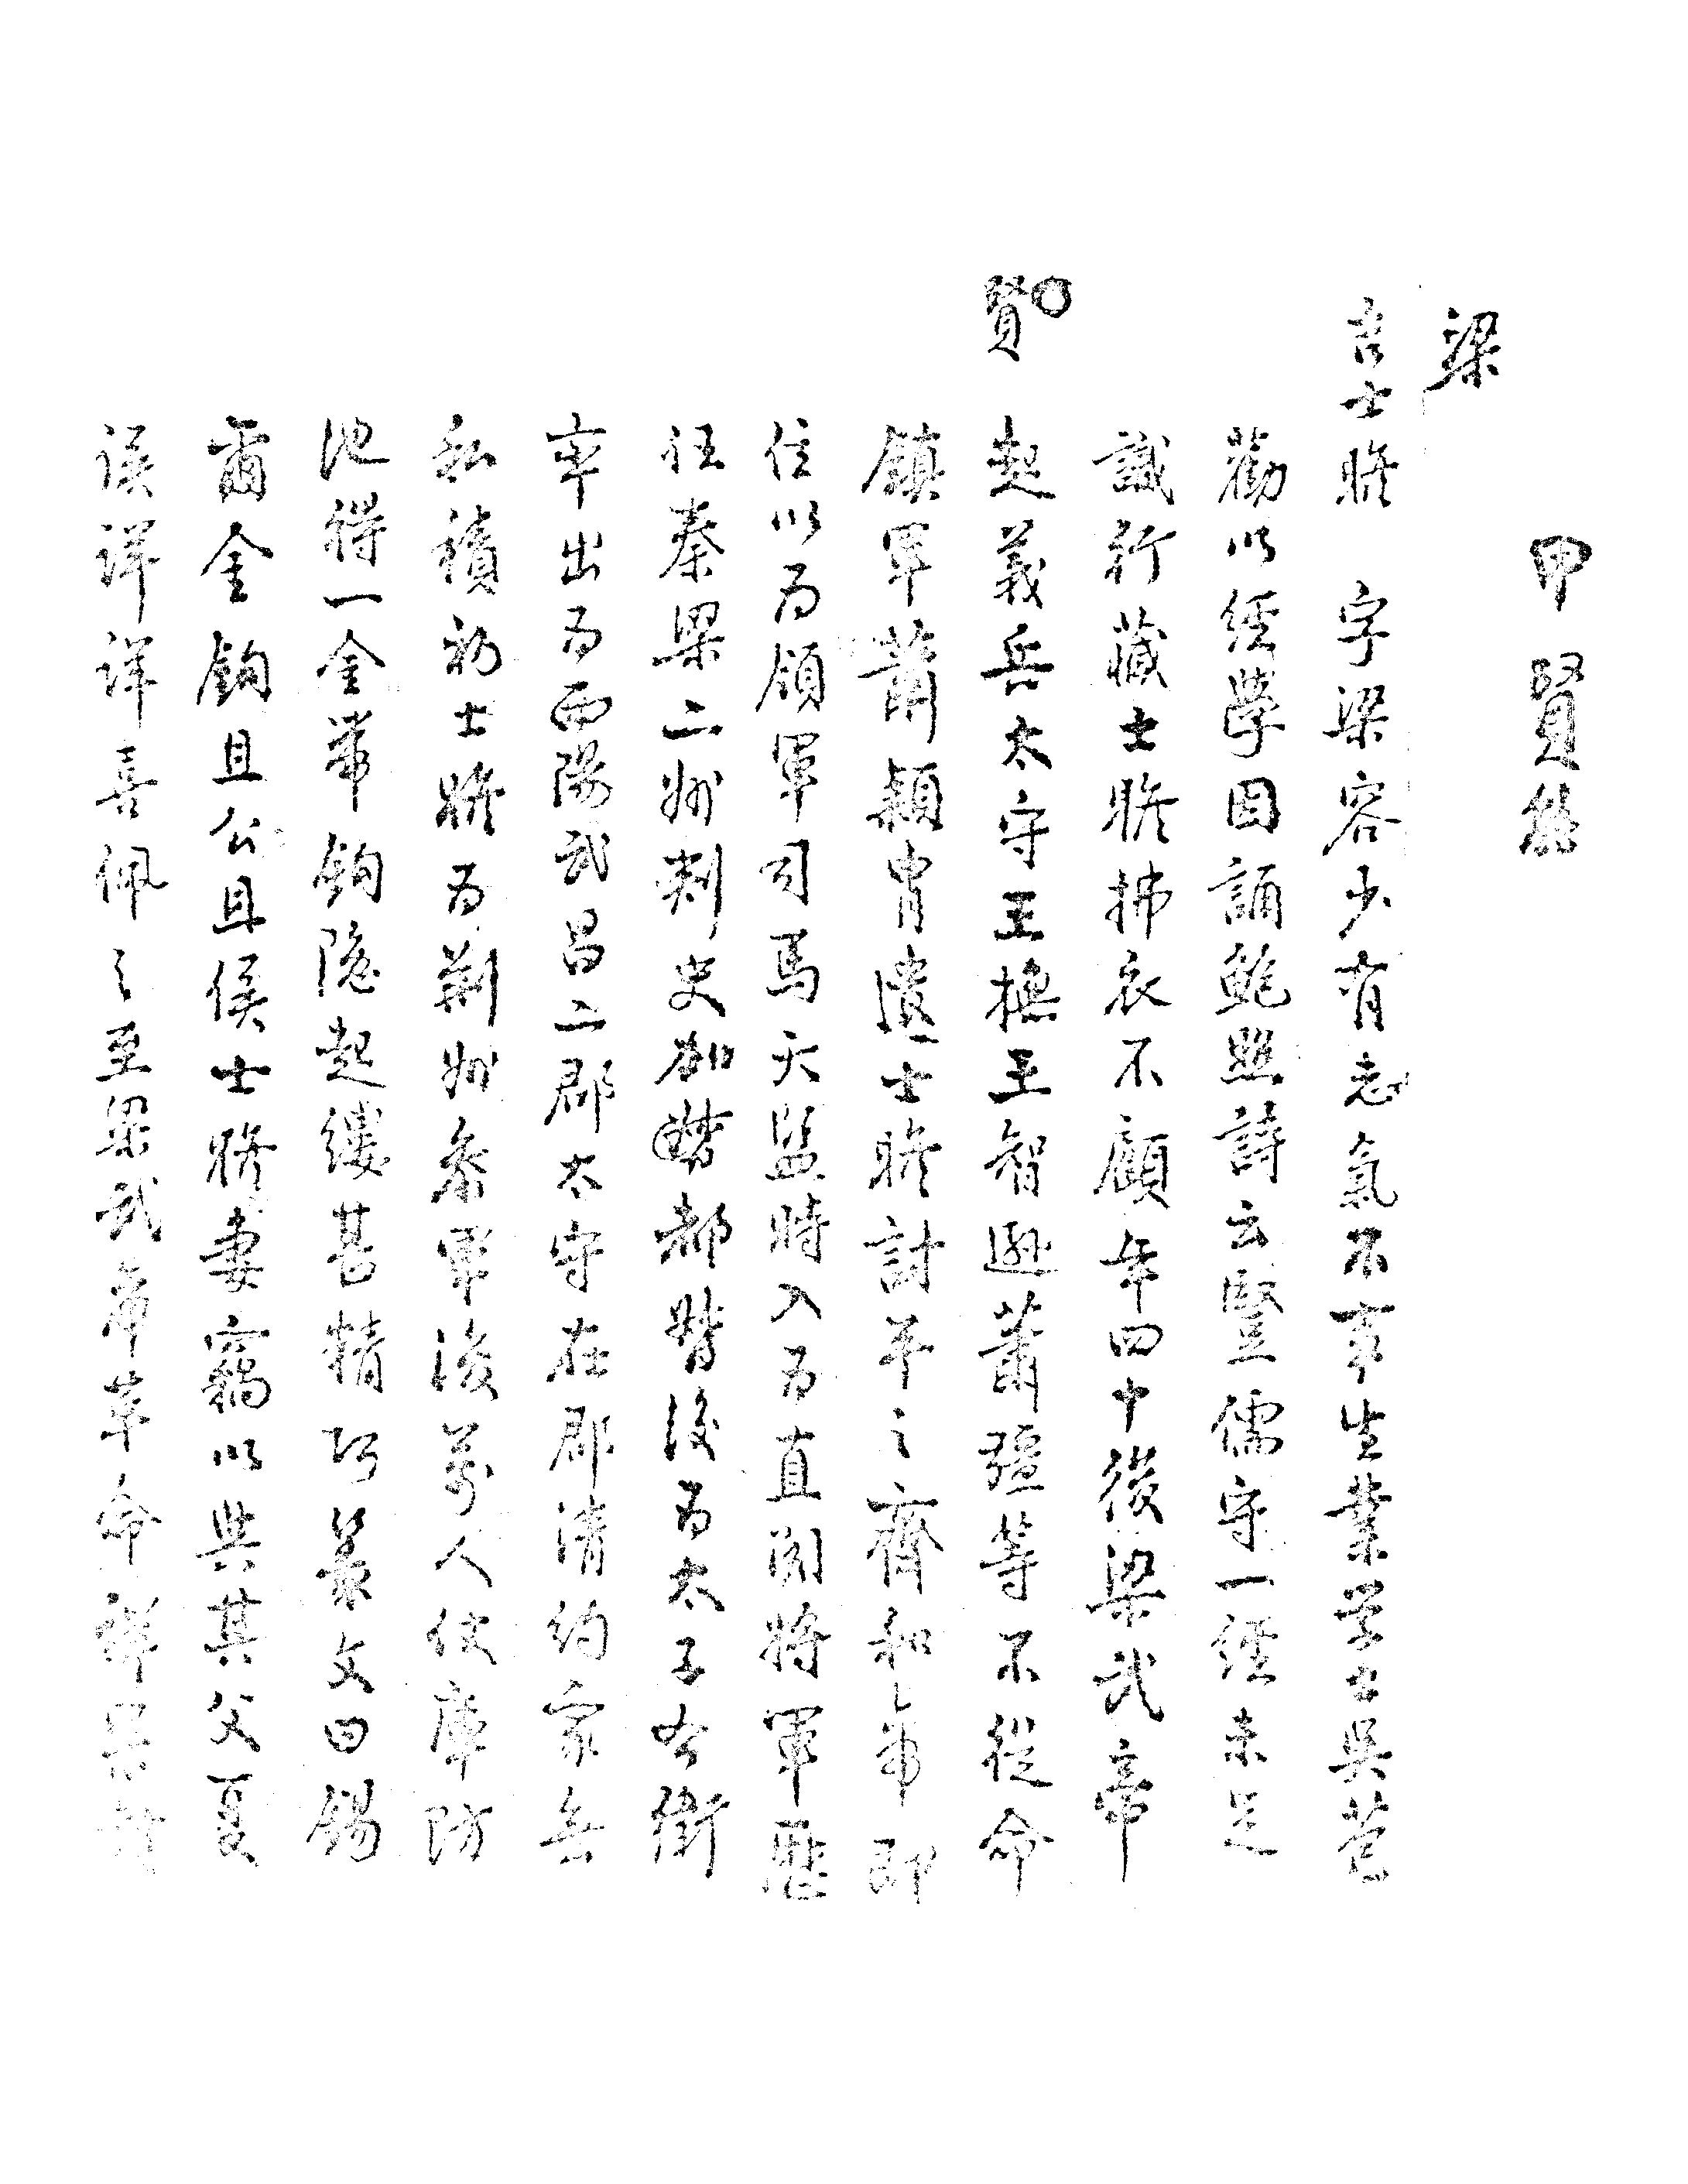 甲賢能
梁
吉士瞻 字梁容少有志氣不事生業学士吴苞
勸以經學因誦鮑照詩云豎儒守一經未足
識行藏士瞻拂衣不顧年四十後梁武帝
起義兵太守王撫王智遜蕭彊等不從命
賢
鎮軍蕭穎胄遣士瞻討平之齊和帝即
位以为領軍司馬天監時入为直閣將軍歷
任秦梁二州刺史加都督後为太子右衛
率出为西陽武昌二郡太守在郡清約家無
私積初士瞻为荆州參軍浚萬人仗庫防
池得一金帶鈎隱起縷甚精巧篆文曰錫
爾金鈎且公且侯士瞻妻竊以與其父夏
侯詳詳喜佩之至梁武帝革命詳